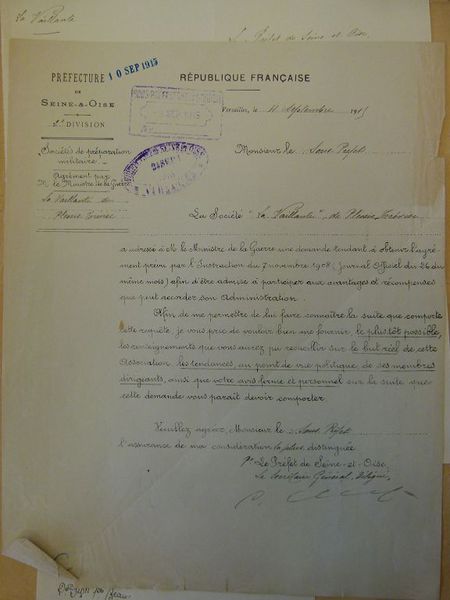 La Vaillante
Préfet de Seine et Oise,
PRÉFECTURE
DE
SEINE-&-OISE
2e DIVISION
10 SEP 1915
RÉPUBLIQUE FRANÇAISE
Versailles, le 11 Septembre 191
Sociétés de préparation
militaire.
Agrément par
M. le Ministre de la Guerre
La Vaillante de
Plessis
Monsieur le Sous Préfet
La Société "La Vaillante" de Plessis
a adressé à M. le Ministre de la Guerre une demande tendant à obtenir l'agré-
ment prévu par l'Instruction du 7 novembre 1908 (Journal Officiel du 26 du
même mois) afin d'être admise à participer aux avantages et récompenses
que peut accorder son Administration.
Afin de me permettre de lui faire connaître la suite que comporte
cette requête je vous prie de vouloir bien me fournir le plus tôt possible,
les renseignements que vous aurez pu recueillir sur le but réel de cette
Association les tendances, au point de vue politique, de ses membres
dirigeants, ainsi que votre avis ferme et personnel sur la suite que
cette demande vous paraît devoir comporter.
Veuillez agréer, Monsieur le Sous Préfet
l'assurance de ma considération la plus distinguée
Le Préfet de Seine-et-Oise,
Le Secrétaire Général